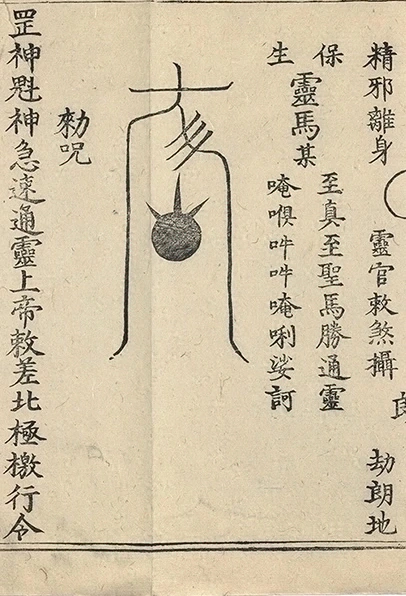 精邪離身 靈官敕煞攝 劫朗地
保
生
靈馬某
至真至聖馬勝通靈
唵吽吽唵唎娑訶
勑咒
罡神魁神急速通靈上帝敕差北極檄行令